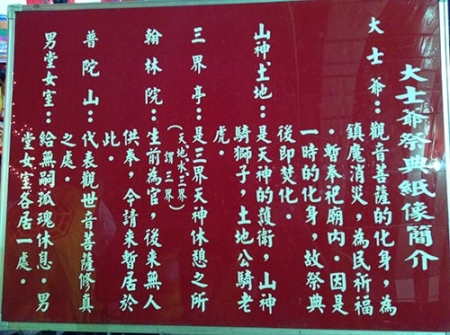 大士爺祭典紙像簡介
大士爺：觀音菩薩的化身，為
鎮魔消災，為民祈福
．暫奉祀廟內．因是
一時的化身，故祭典
後即焚化．
山神土地：是天神的護衛，山神
騎獅子，土地公騎老
虎．
三界亭：是三界天神休憩之所
（天地水三界謂三界）
翰林院：生前為官，後來無人
供奉，今請來暫居於
此．
普陀山：代表觀世音菩薩修真
之處．
男堂女室：給無嗣孤魂休息．男
堂女室各居一處．